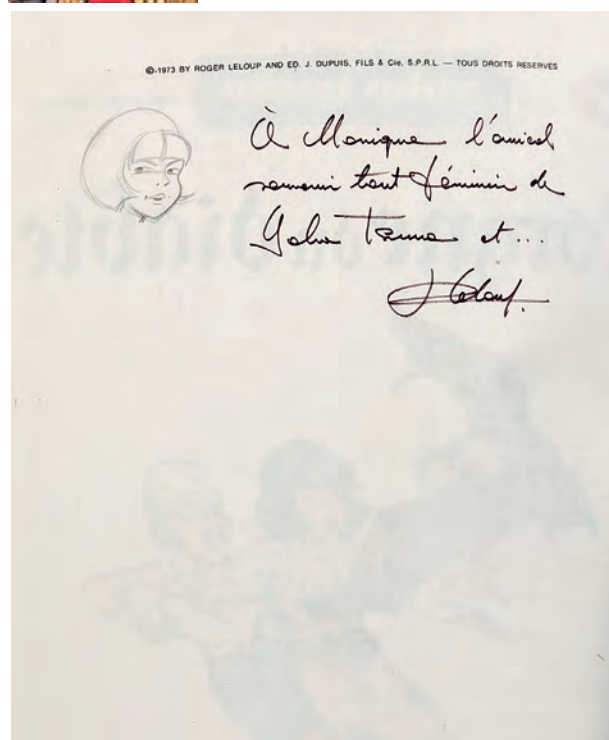 ©-1973 BY ROGER LELOUP AND ED. J. DUPUIS, FILS & Cie. S.P.R.L. — TOUS DROITS RESERVES
À Monique l'amical
souvenir tout féminin de
Yoko Tsuno et ...
Leloup.